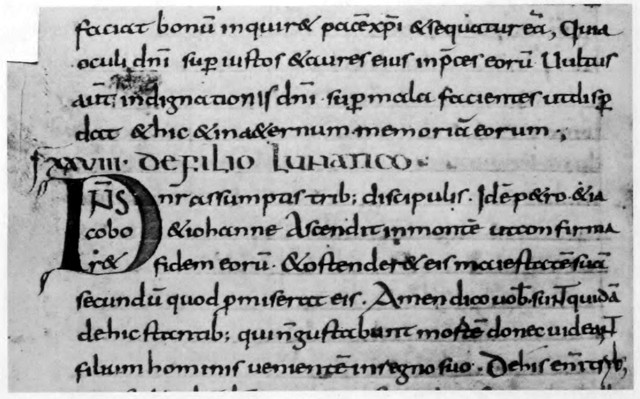 faciat bonū inquir& pacē xp̄i & sequatur eā, Quia
oculi dn̄i sup̱ iustos & aures eius in p̄ces eorū Uultus
aūt indignationis dn̄i sup̱ mala facientes ut disp̱
dat & hic & in a&ernum memoriā eorum;
xxviii. De filio lunatico.
DN̄S nr̄ assumptis trib; discipulis. Idē p&ro. & ia
cobo & iohanne Ascendit in montē ut confirma
r& fidem eorū. & ostender& eis maiestatē suā
secundū quod ꝓmiserat eis. Amen dico uob̄. sunt quidā
de hic stantib; qui n̄ gustabunt mortē donec uideant
filium hominis uenientē in regno suo. De his enī trib;